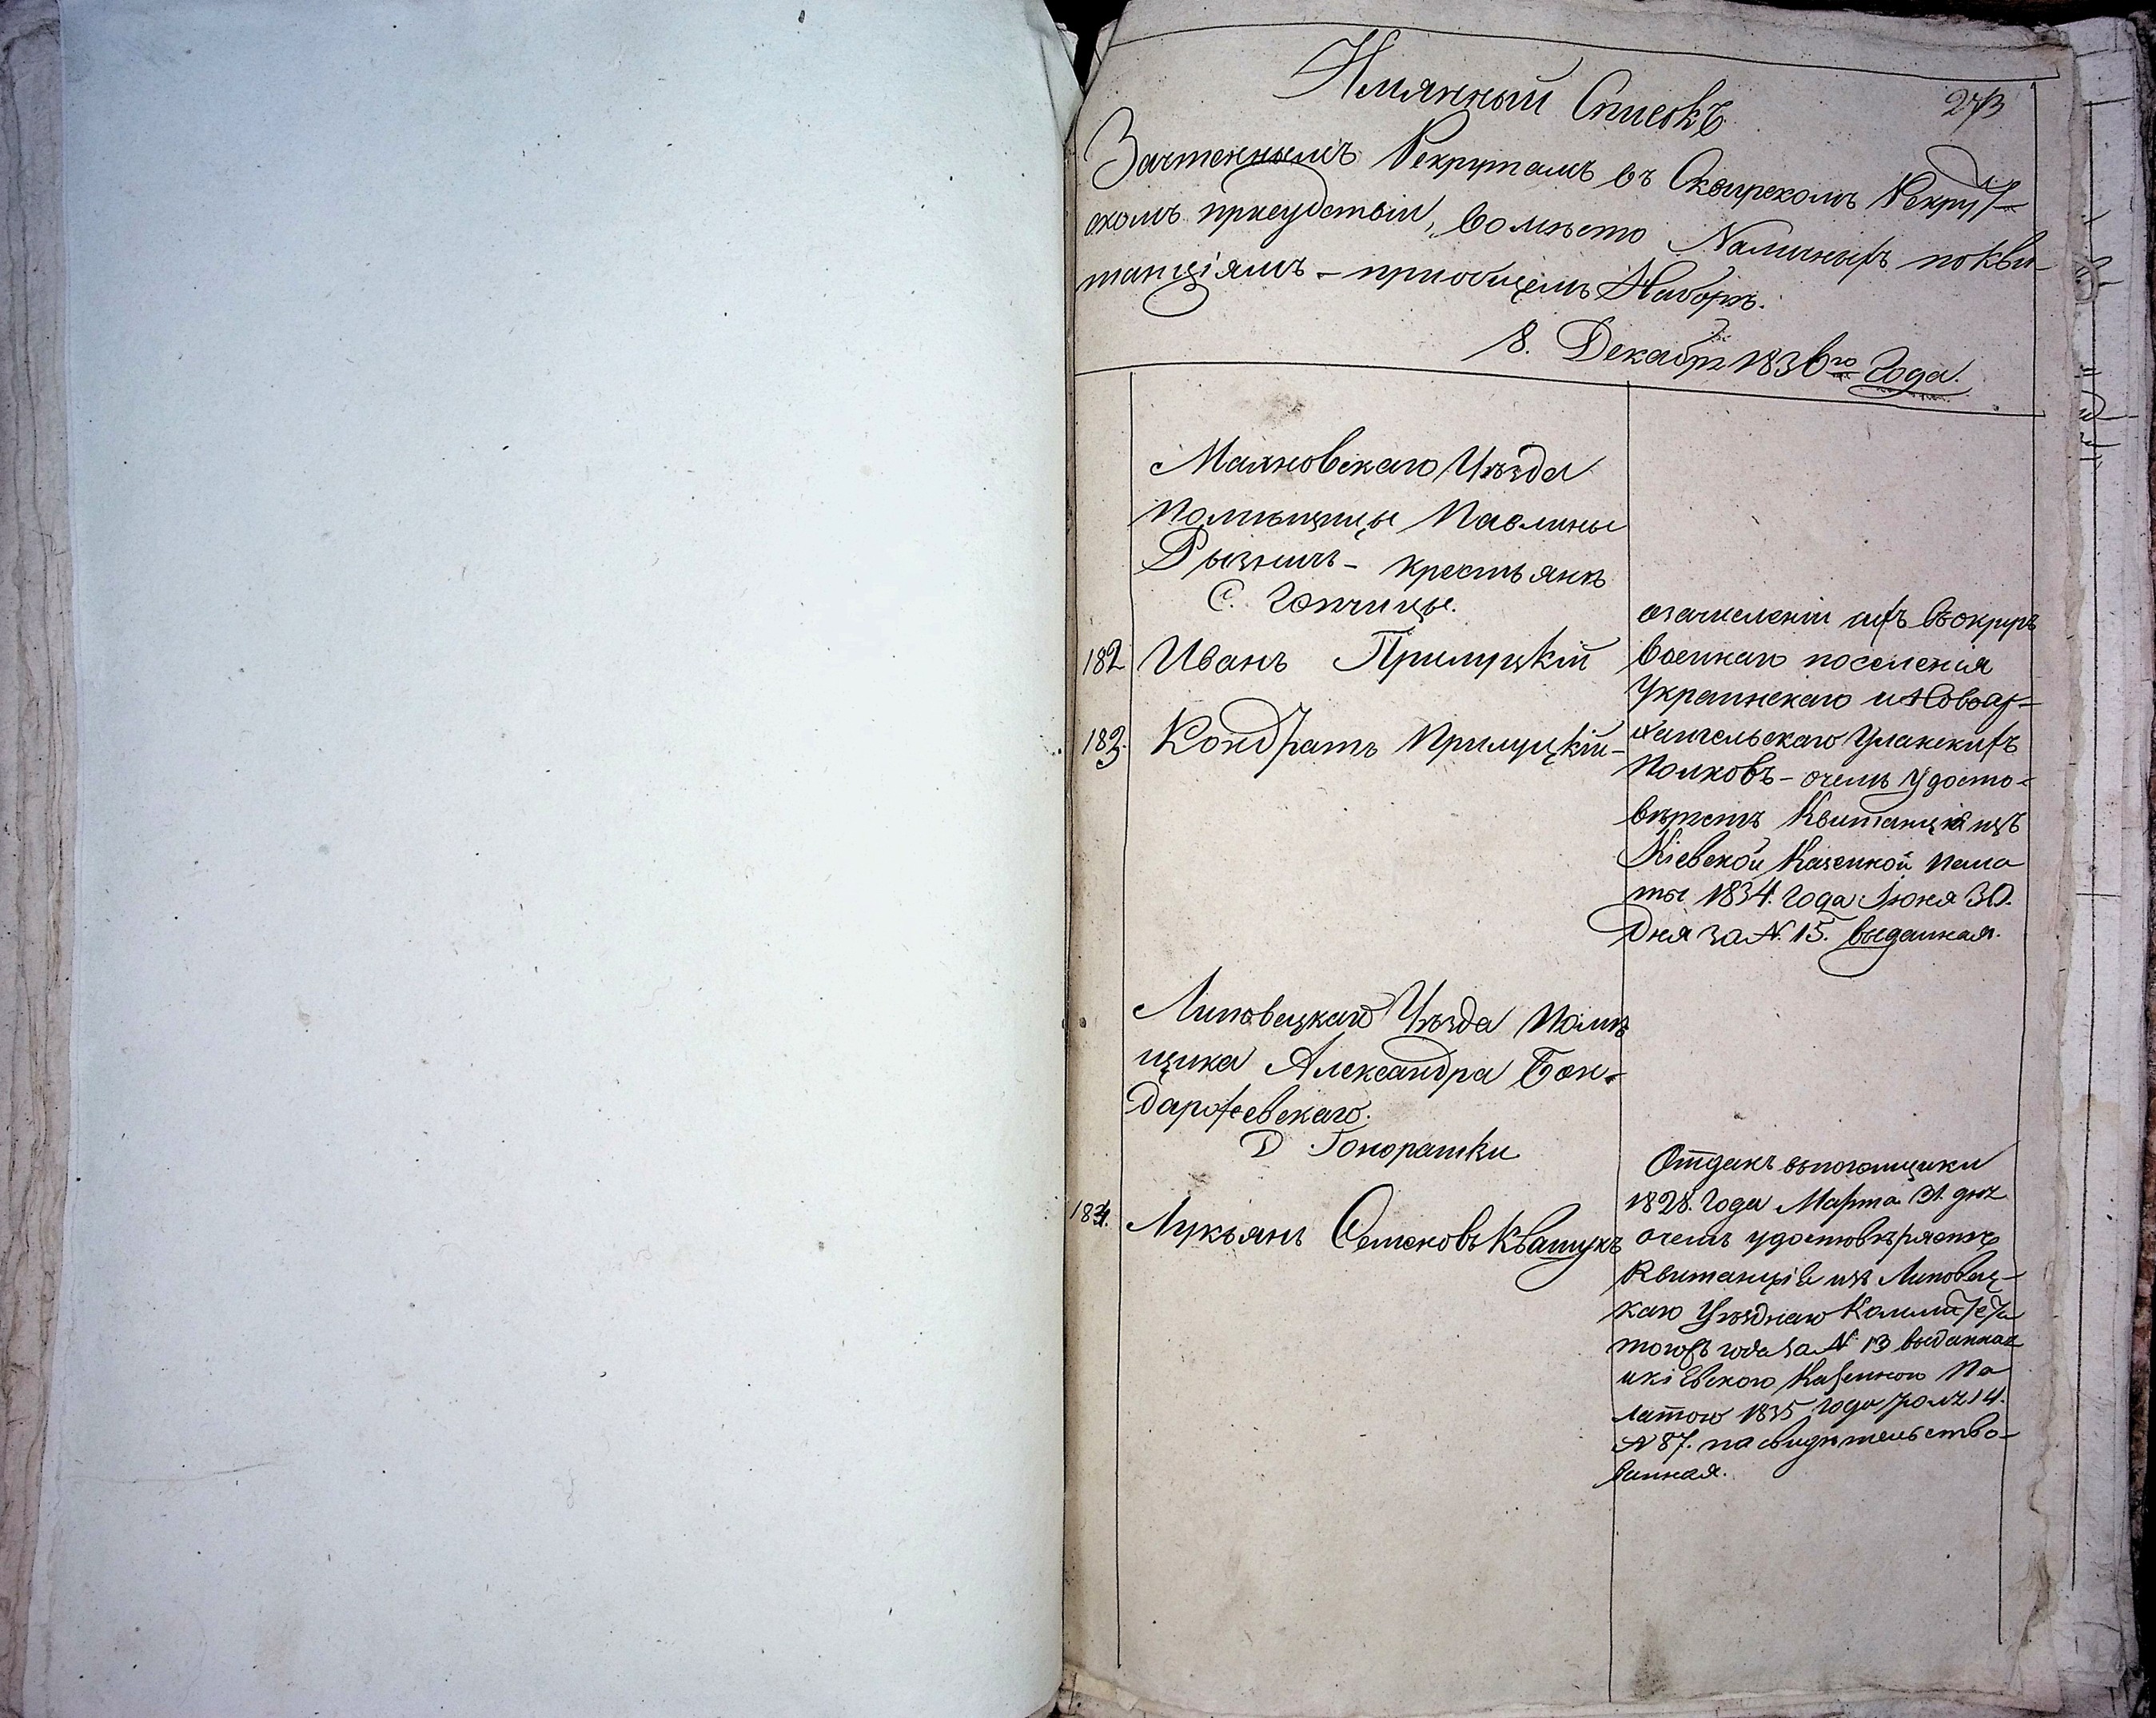 Имянный Списокъ
273
Зачтеннымъ Рекрутамъ въ Сквирскомъ Рекрут-
скомъ присудствіи, вомѣсто Наличныхъ покви-
танціямъ - приобщемъ Наборѣ.
8. Декабря 1836го Года.
Махновскаго Уѣзда
Помѣщицы Павлины
Рызничь - крестьянѣ
С. Гопчицы.
182 Иванъ Прилуцкій
183. Кондратъ Прилуцкій -
озачисленіи ихъ въокругъ
военнаго поселенія
Украинскаго и Новоар-
хангельскаго Уланскихъ
Полковъ - очемъ удосто-
вѣряетъ Квитанція изъ
Кіевской Казенной Пала
ты 1834. года Іюня 30.
Дня за N. 15. выданная.
Липовецкаго Уѣзда Помѣ
щика Александра Бон-
даровскаго.
Д Гонорашки
184. Лукьянъ Семеновъ Квашукъ
Отданъ
1828. Года Марта 31. дня
очемъ удостовѣряетъ
Квитанція изъ Липовец-
каго Уѣзднаго Коммитета
тогожъ года за N 13 выданная
икіевскою Казенною Па
латою 1835 года 14.
N 87. пасвидѣтельство-
ванная.